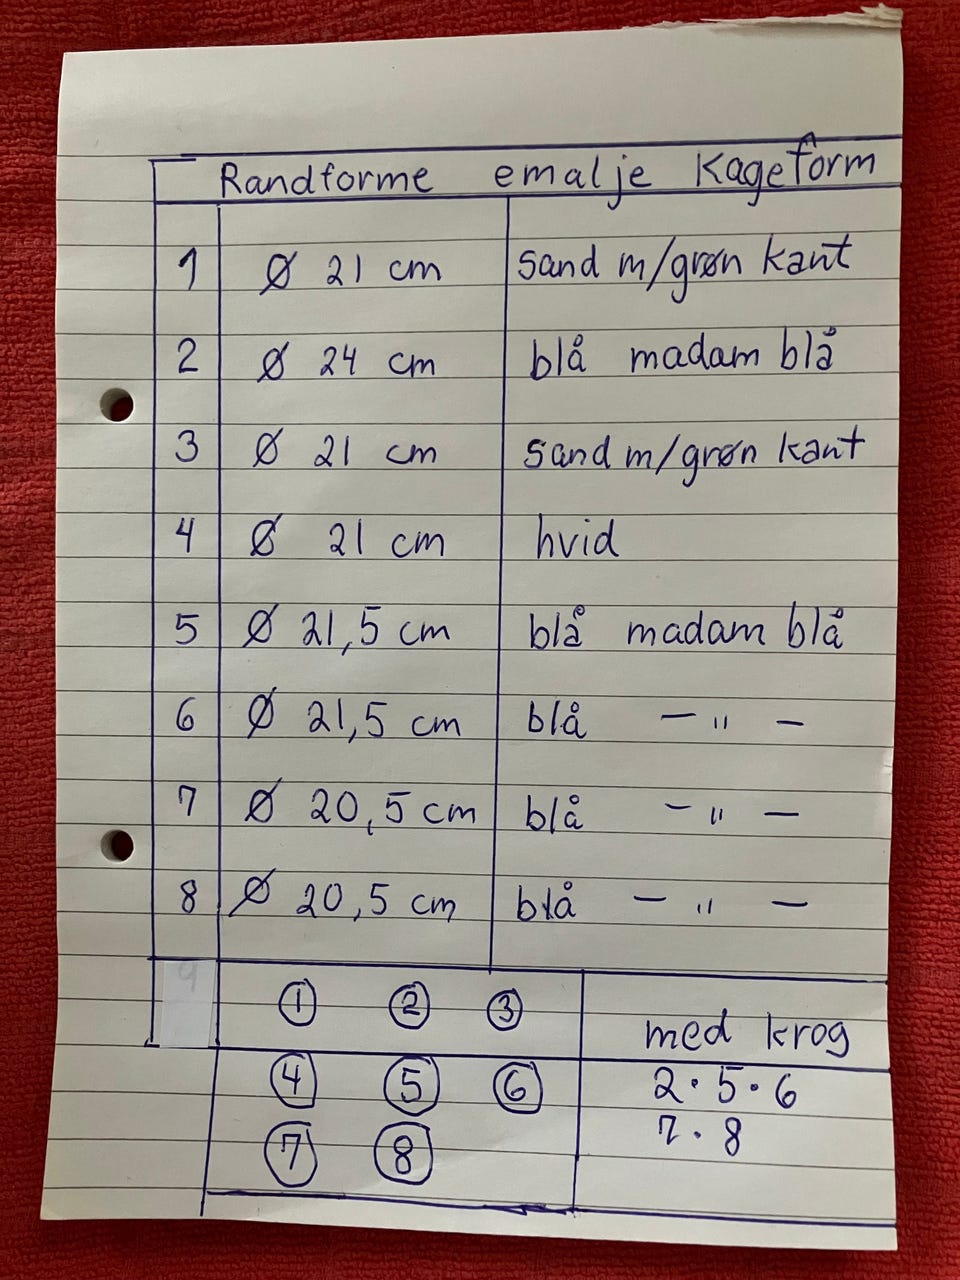 Randforme emalje Kageform
1 Ø 21 cm sand m/grøn kant
2 Ø 24 cm blå madam blå
3 Ø 21 cm sand m/grøn kant
4 Ø 21 cm hvid
5 Ø 21,5 cm blå madam blå
6 Ø 21,5 cm blå — " —
7 Ø 20,5 cm blå — " —
8 Ø 20,5 cm blå — " —
9
① ② ③
④ ⑤ ⑥
⑦ ⑧
med krog
2 · 5 · 6
7 · 8